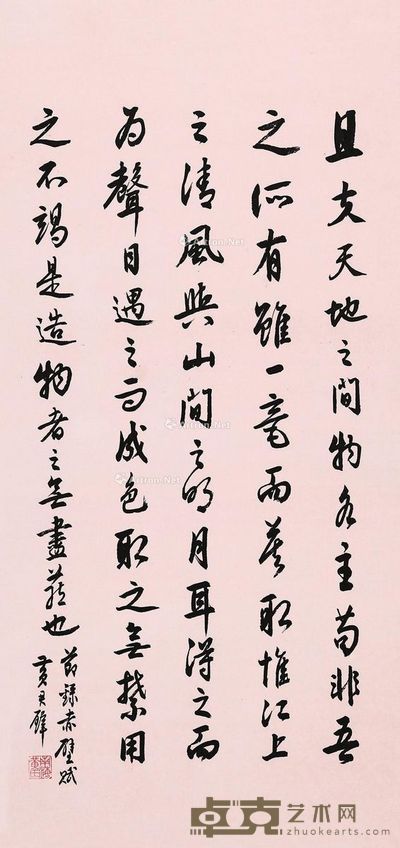 且夫天地之間物各主苟非吾
之所有雖一毫而莫取惟江上
之清風與山間之明月耳得之而
為聲目遇之而成色取之無禁用
之不竭是造物者之無盡藏也
節錄赤壁賦
黃君璧
卓克艺术网
zhuokearts.com